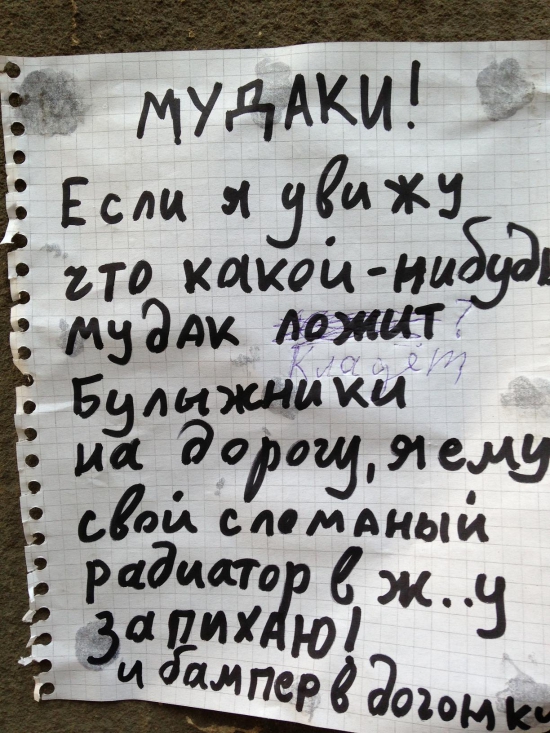 МУДАКИ!
Если я увижу
что какой-нибудь
мудак ложит ?
Кладёт
Булыжники
на дорогу, я ему
свой сломаный
радиатор в ж..у
запихаю!
и бампер в догонку